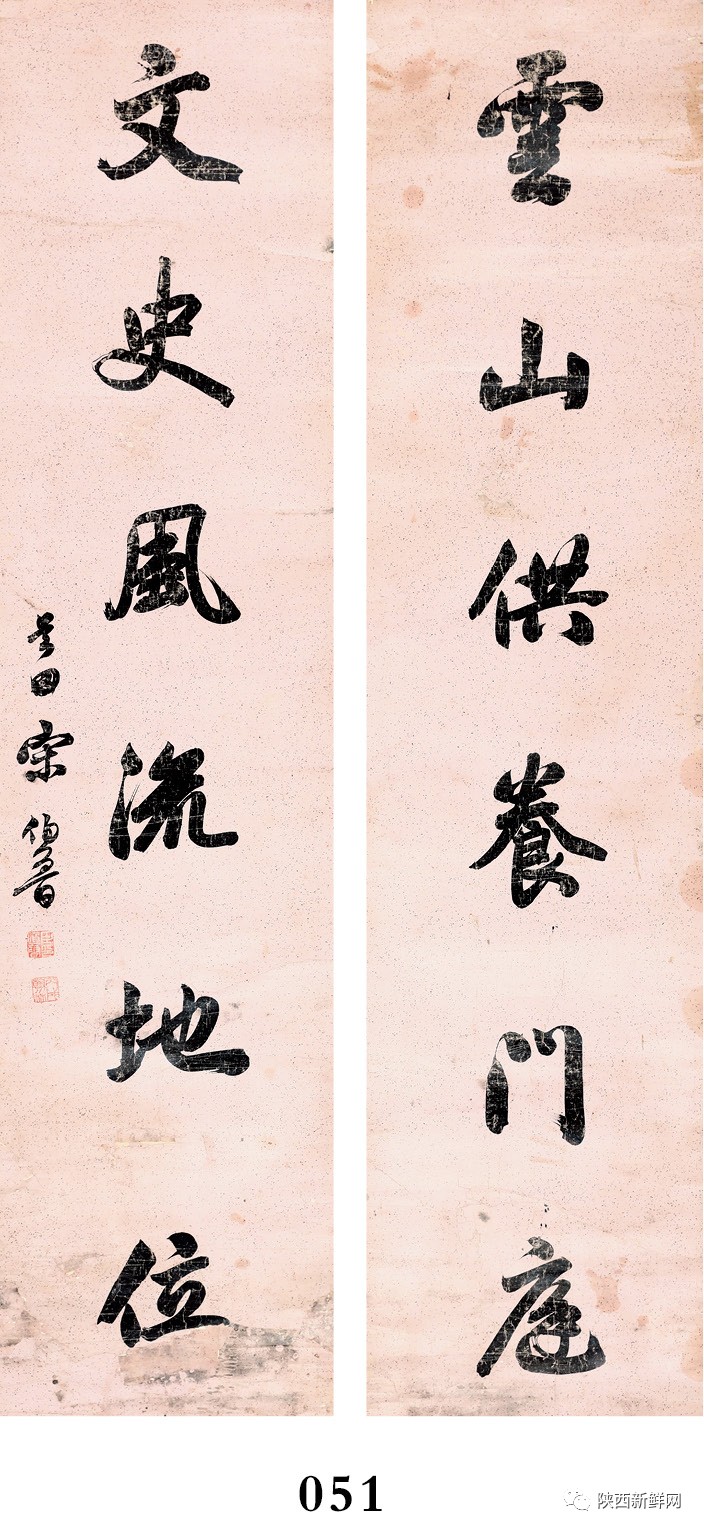 雲山供養門庭
文史風流地位
芝田宋伯魯
051
陕西新鲜网